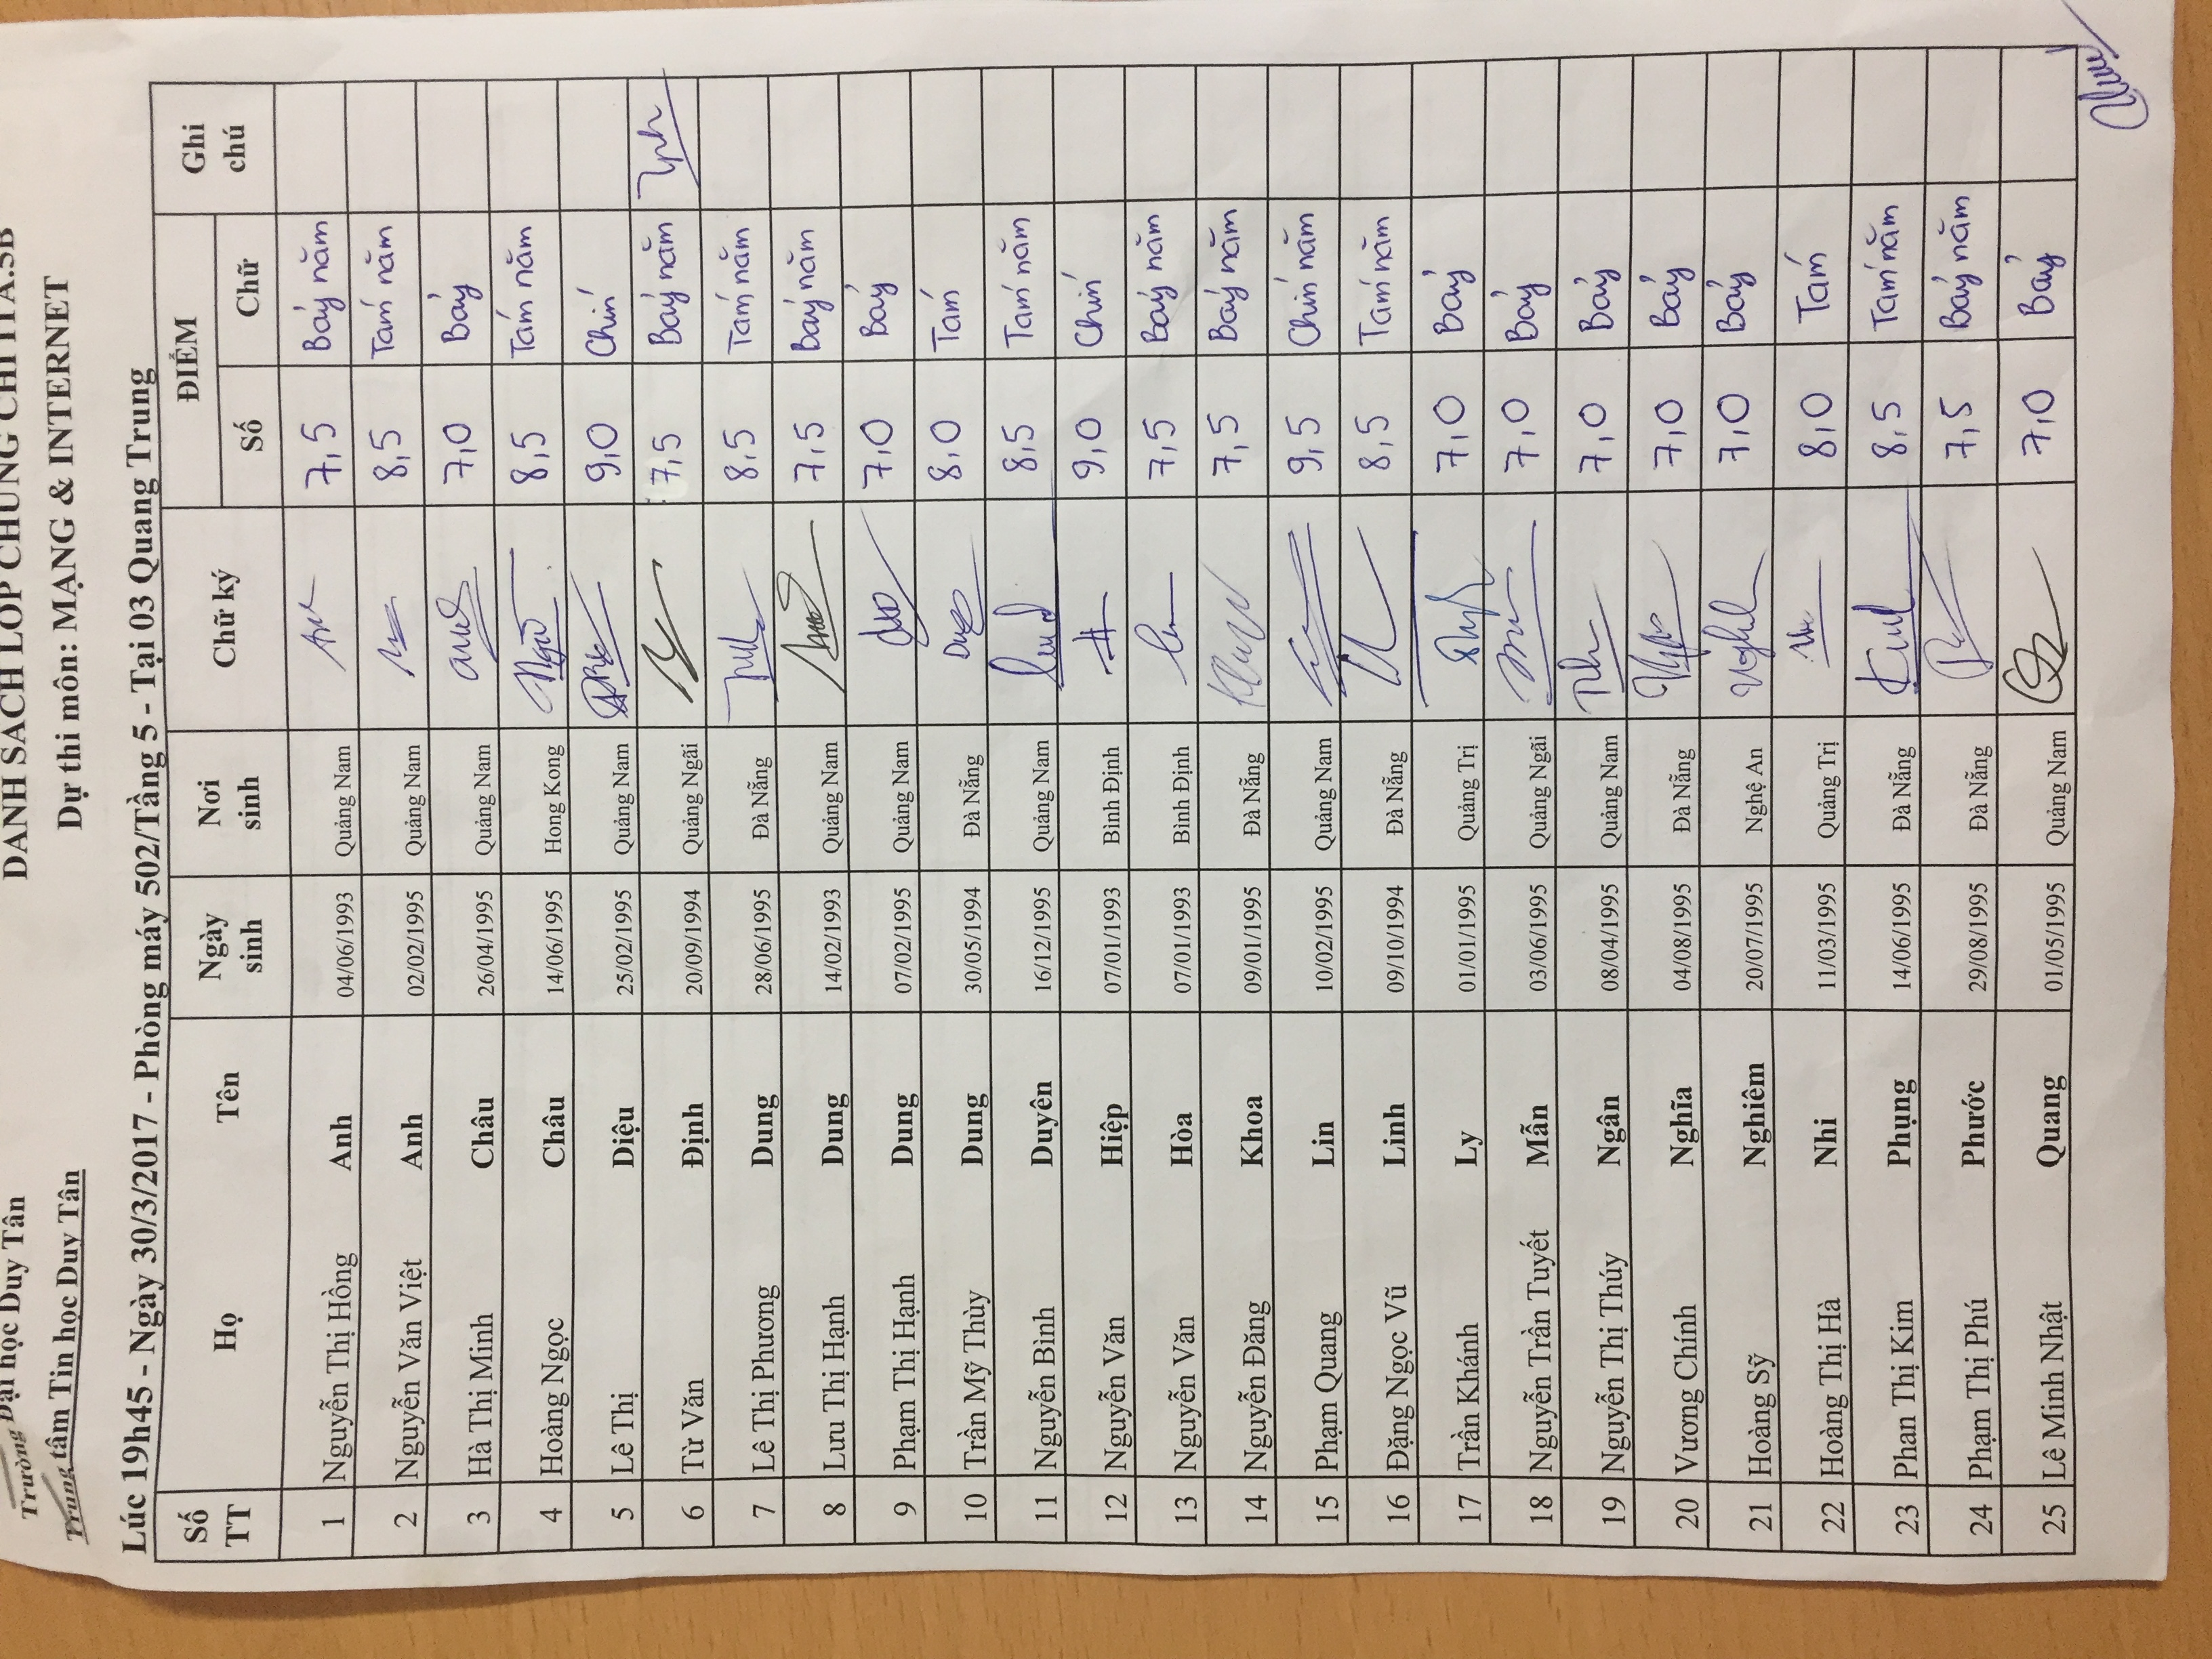 Trường Đại học Duy Tân
Trung tâm Tin học Duy Tân
DANH SÁCH LỚP CHỨNG CHỈ THA.5B
Dự thi môn: MẠNG & INTERNET
Lúc 19h45 - Ngày 30/3/2017 - Phòng máy 502/Tầng 5 - Tại 03 Quang Trung
Số TT Họ Tên Ngày sinh Nơi sinh Chữ ký ĐIỂM Số Chữ Ghi chú
1 Nguyễn Thị Hồng Anh 04/06/1993 Quảng Nam 7,5 Bảy năm
2 Nguyễn Văn Việt Anh 02/02/1995 Quảng Nam 8,5 Tám năm
3 Hà Thị Minh Châu 26/04/1995 Quảng Nam 7,0 Bảy
4 Hoàng Ngọc Châu 14/06/1995 Hong Kong 8,5 Tám năm
5 Lê Thị Diệu 25/02/1995 Quảng Nam 9,0 Chín
6 Từ Văn Định 20/09/1994 Quảng Ngãi 7,5 Bảy năm
7 Lê Thị Phương Dung 28/06/1995 Đà Nẵng 8,5 Tám năm
8 Lưu Thị Hạnh Dung 14/02/1993 Quảng Nam 7,5 Bảy năm
9 Phạm Thị Hạnh Dung 07/02/1995 Quảng Nam 7,0 Bảy
10 Trần Mỹ Thùy Dung 30/05/1994 Đà Nẵng 8,0 Tám
11 Nguyễn Bình Duyên 16/12/1995 Quảng Nam 8,5 Tám năm
12 Nguyễn Văn Hiệp 07/01/1993 Bình Định 9,0 Chín
13 Nguyễn Văn Hòa 07/01/1993 Bình Định 7,5 Bảy năm
14 Nguyễn Đăng Khoa 09/01/1995 Đà Nẵng 7,5 Bảy năm
15 Phạm Quang Lin 10/02/1995 Quảng Nam 9,5 Chín năm
16 Đặng Ngọc Vũ Linh 09/10/1994 Đà Nẵng 8,5 Tám năm
17 Trần Khánh Ly 01/01/1995 Quảng Trị 7,0 Bảy
18 Nguyễn Trần Tuyết Mẫn 03/06/1995 Quảng Ngãi 7,0 Bảy
19 Nguyễn Thị Thúy Ngân 08/04/1995 Quảng Nam 7,0 Bảy
20 Vương Chính Nghĩa 04/08/1995 Đà Nẵng 7,0 Bảy
21 Hoàng Sỹ Nghiêm 20/07/1995 Nghệ An 7,0 Bảy
22 Hoàng Thị Hà Nhi 11/03/1995 Quảng Trị 8,0 Tám
23 Phan Thị Kim Phụng 14/06/1995 Đà Nẵng 8,5 Tám năm
24 Phạm Thị Phú Phước 29/08/1995 Đà Nẵng 7,5 Bảy năm
25 Lê Minh Nhật Quang 01/05/1995 Quảng Nam 7,0 Bảy